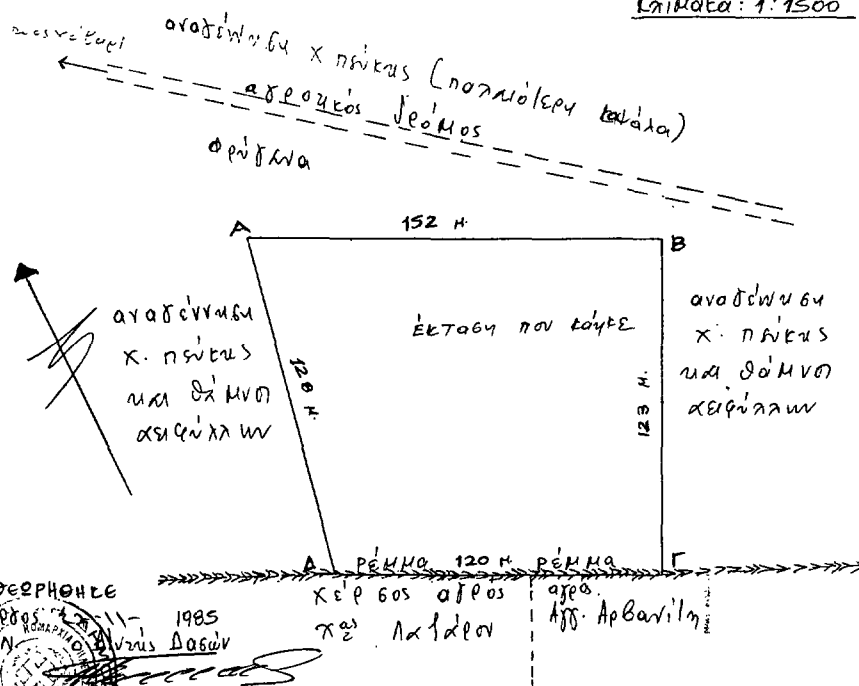 Κλίματα: 1:1500
αναγέννηση χ πεύκης (παλαιότερη
αγροτικός δρόμος
Φρύγανα
152 μ.
Α
Β
αναγέννηση
χ. πεύκης
και θάμνοι
αειφύλλων
128 μ.
έκταση που κάηκε
123 μ.
αναγέννηση
χ. πεύκης
και θάμνοι
αειφύλλων
Δ ρέμμα 120 μ. ρέμμα Γ
χέρσος αγρος
χας Λαζάρου
αγρο.
Αγγ. Αρβανίτη
ΘΕΩΡΗΘΗΚΕ
-11- 1985
Δασών